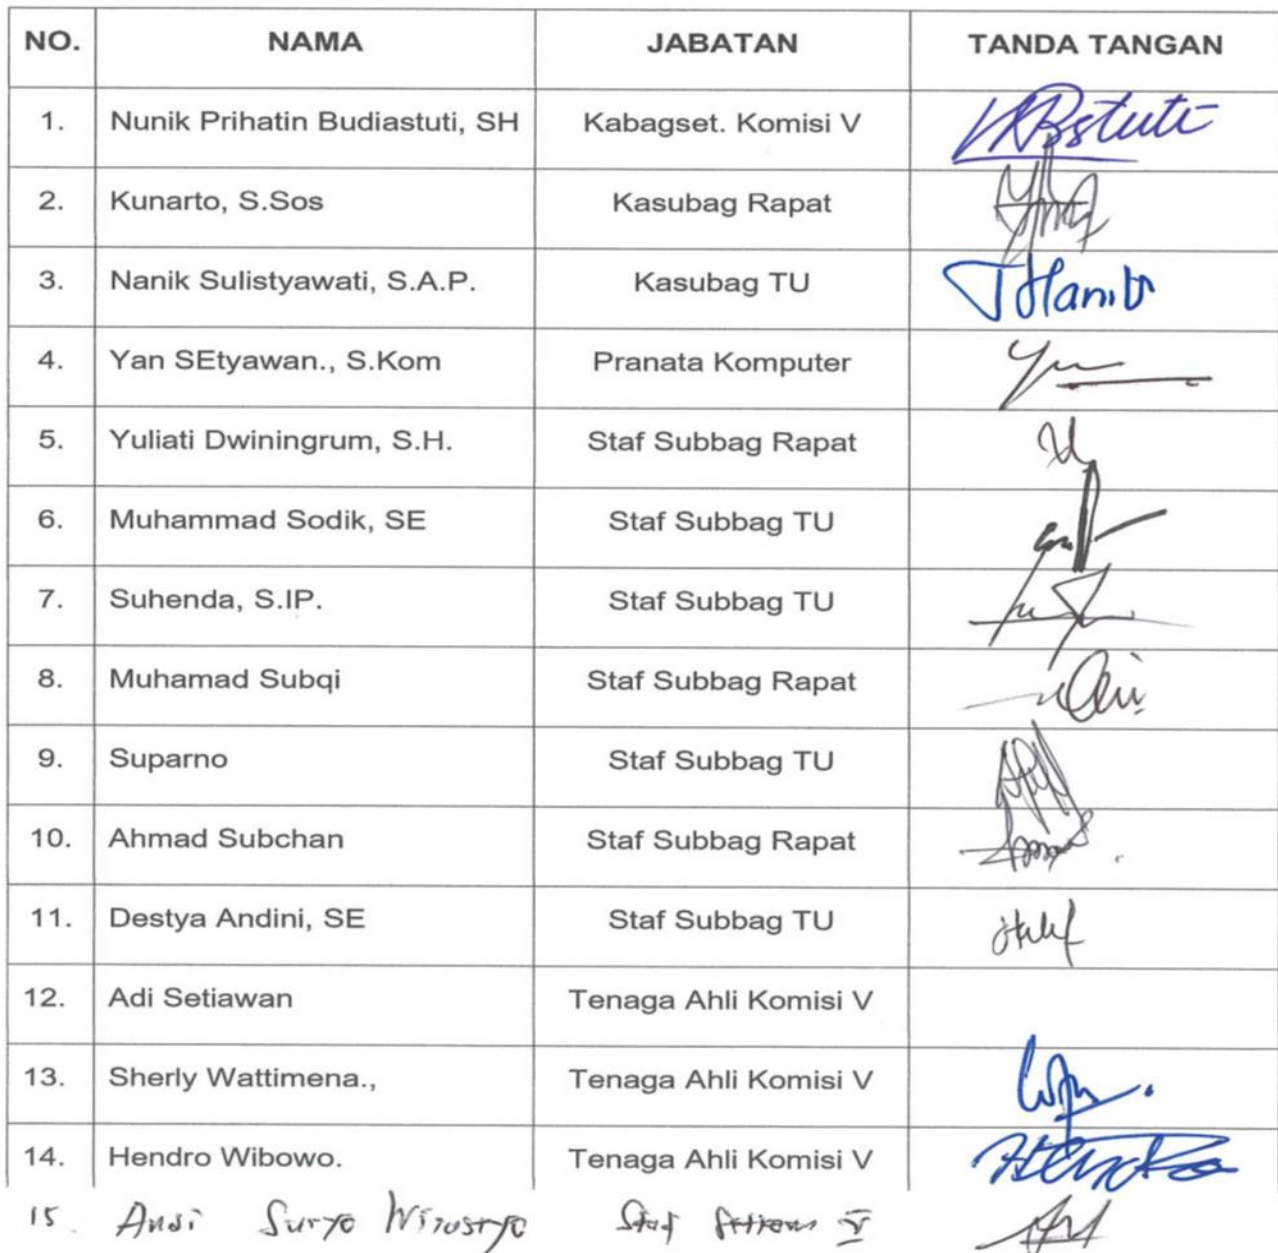 NO. NAMA JABATAN TANDA TANGAN
1. Nunik Prihatin Budiastuti, SH Kabagset. Komisi V
2. Kunarto, S.Sos Kasubag Rapat
3. Nanik Sulistyawati, S.A.P. Kasubag TU
4. Yan SEtyawan., S.Kom Pranata Komputer
5. Yuliati Dwiningrum, S.H. Staf Subbag Rapat
6. Muhammad Sodik, SE Staf Subbag TU
7. Suhenda, S.IP. Staf Subbag TU
8. Muhamad Subqi Staf Subbag Rapat
9. Suparno Staf Subbag TU
10. Ahmad Subchan Staf Subbag Rapat
11. Destya Andini, SE Staf Subbag TU
12. Adi Setiawan Tenaga Ahli Komisi V
13. Sherly Wattimena., Tenaga Ahli Komisi V
14. Hendro Wibowo. Tenaga Ahli Komisi V
15. Andi Suryo Staf V